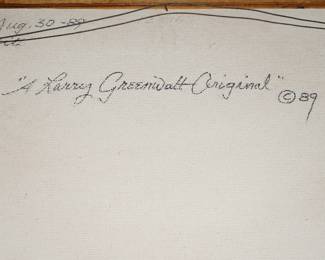 Aug. 30-89
"A Larry Greenwalt Original"
©89